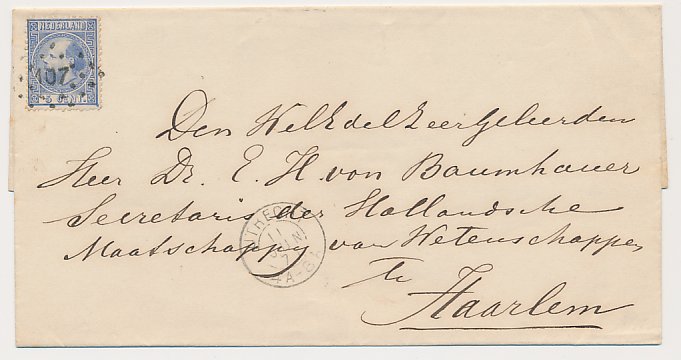 NEDERLAND
107
5 CENT
Den WelEdelZeerGeleerden
Heer Dr. E. H. von Baumhauer
Secretaris der Hollandsche
Maatschappy van Wetenschappen
Te
Haarlem
UTRECHT
11